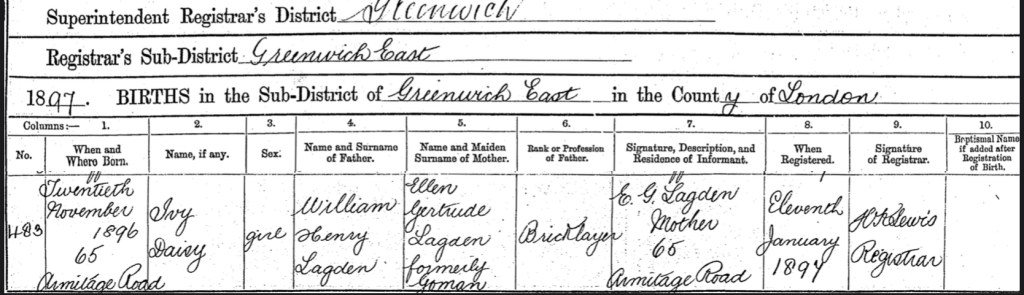 Superintendent Registrar's District Greenwich
Registrar's Sub-District Greenwich East
1897. BIRTHS in the Sub-District of Greenwich East in the County of London
Columns:— 1. 2. 3. 4. 5. 6. 7. 8. 9. 10.
No. When and Where Born. Name, if any. Sex. Name and Surname of Father. Name and Maiden Surname of Mother. Rank or Profession of Father. Signature, Description, and Residence of Informant. When Registered. Signature of Registrar. Baptismal Name if added after Registration of Birth.
483
Twentieth
November
1896
65
Armitage Road
Ivy
Daisy
girl
William
Henry
Lagden
Ellen
Gertrude
Lagden
formerly
Goman
Bricklayer
E. G. Lagden
Mother
65
Armitage Road
Eleventh
January
1897
H A Lewis
Registrar